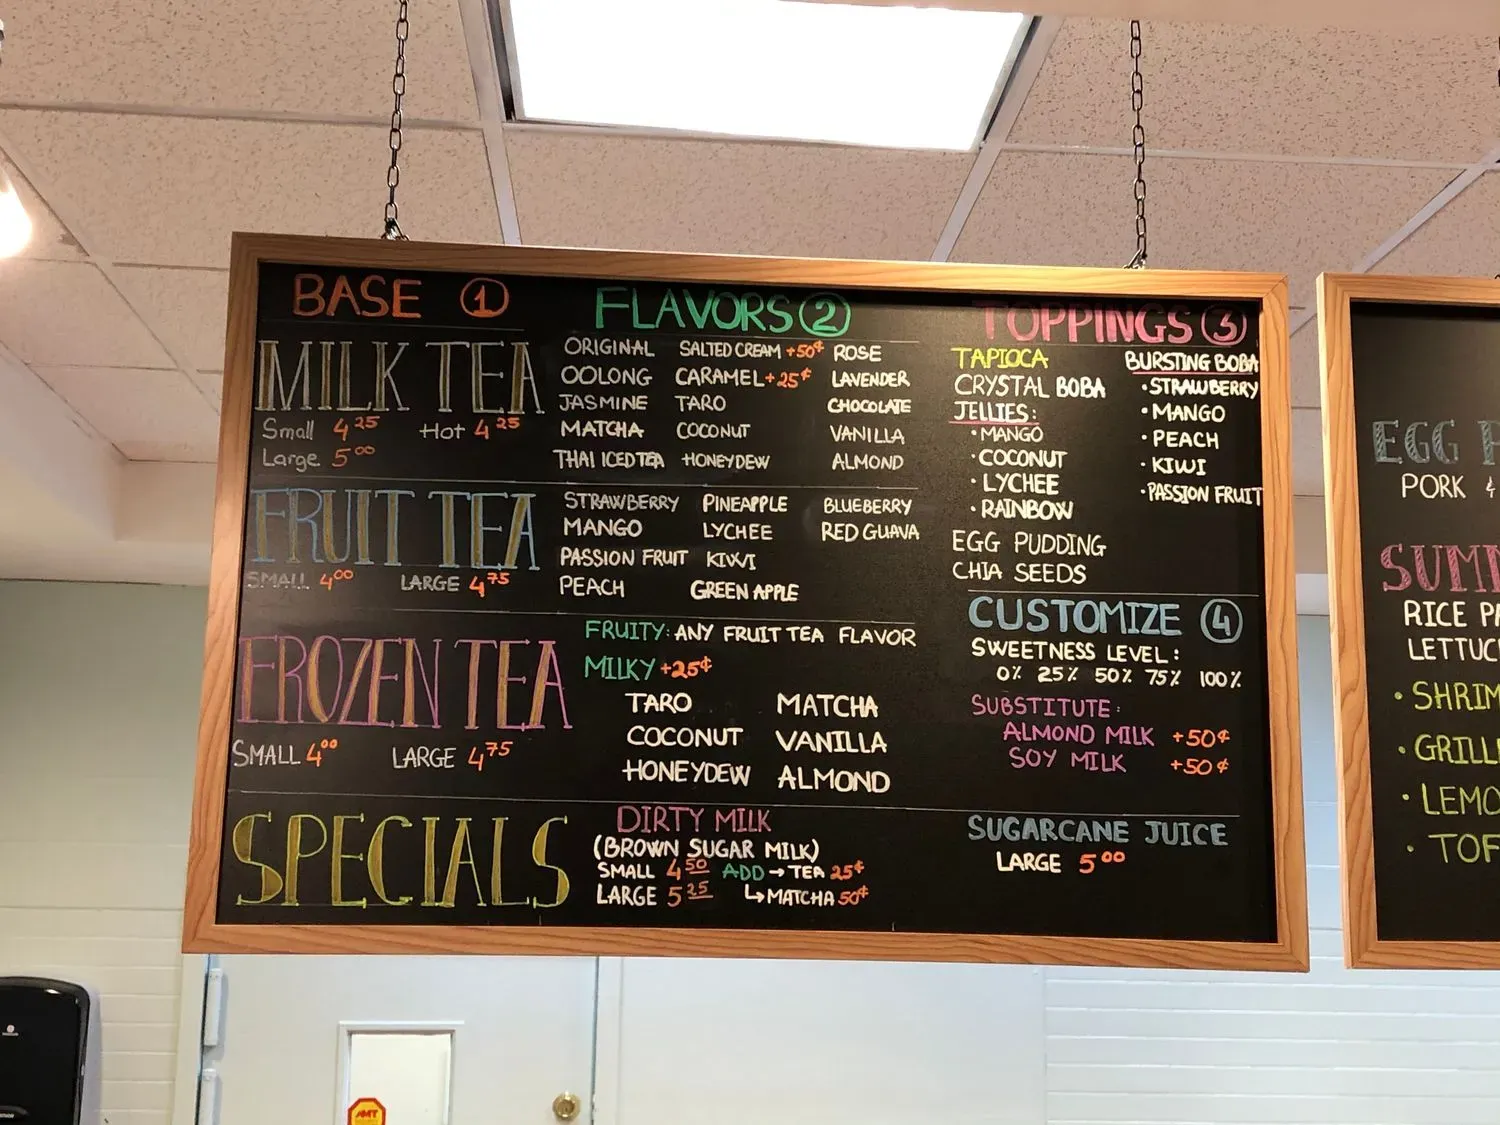 BASE 1
MILK TEA
Small 4.25 Hot 4.25
Large 5.00
FRUIT TEA
SMALL 4.00 LARGE 4.75
FROZEN TEA
SMALL 4.00 LARGE 4.75
SPECIALS
FLAVORS 2
ORIGINAL SALTED CREAM +50¢ ROSE
OOLONG CARAMEL +25¢ LAVENDER
JASMINE TARO CHOCOLATE
MATCHA COCONUT VANILLA
THAI ICED TEA HONEYDEW ALMOND
STRAWBERRY PINEAPPLE BLUEBERRY
MANGO LYCHEE RED GUAVA
PASSION FRUIT KIWI
PEACH GREEN APPLE
FRUITY: ANY FRUIT TEA FLAVOR
MILKY +25¢
TARO MATCHA
COCONUT VANILLA
HONEYDEW ALMOND
DIRTY MILK
(BROWN SUGAR MILK)
SMALL 4.50 ADD → TEA 25¢
LARGE 5.25 ↳ MATCHA 50¢
TOPPINGS 3
TAPIOCA
CRYSTAL BOBA
JELLIES:
• MANGO
• COCONUT
• LYCHEE
• RAINBOW
EGG PUDDING
CHIA SEEDS
BURSTING BOBA
• STRAWBERRY
• MANGO
• PEACH
• KIWI
• PASSION FRUIT
CUSTOMIZE 4
SWEETNESS LEVEL:
0% 25% 50% 75% 100%
SUBSTITUTE:
ALMOND MILK +50¢
SOY MILK +50¢
SUGARCANE JUICE
LARGE 5.00
EGG
PORK &
SUM
RICE PA
LETTUC
• SHRIM
• GRILL
• LEMO
• TOF
AMT